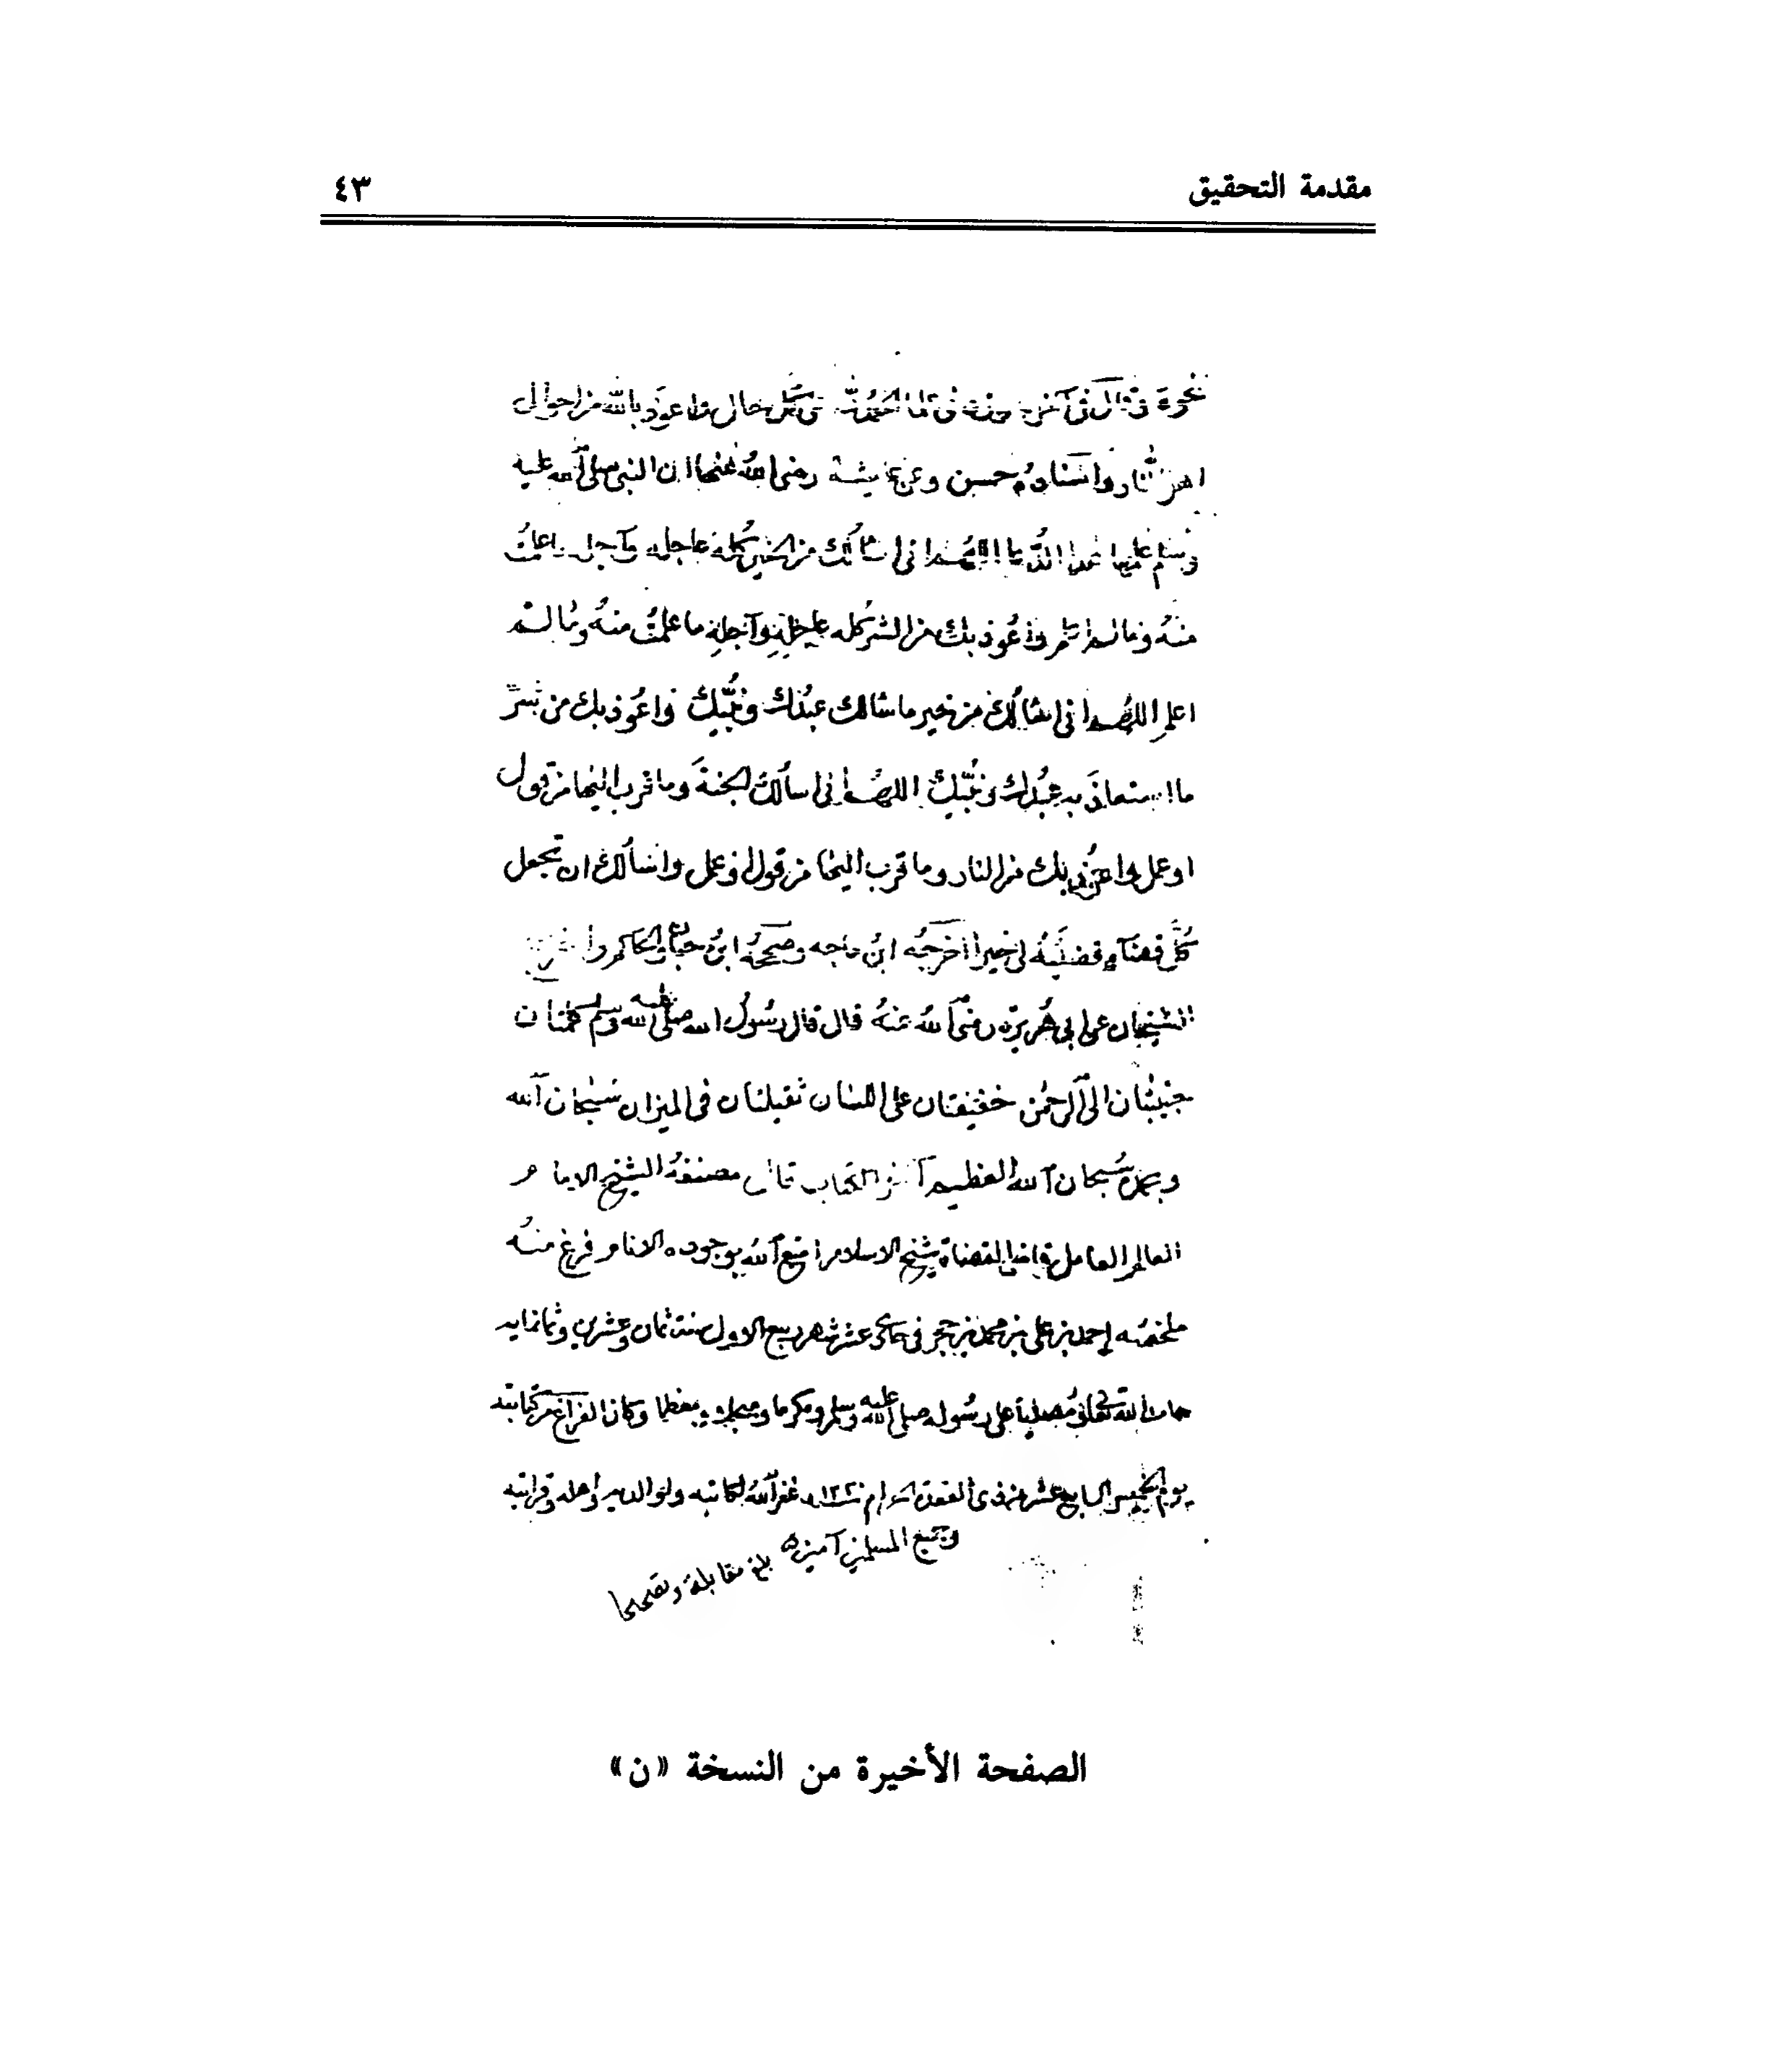 مقدمة التحقيق
٤٣
نحوه وقال في آخره وزدني علما الحمد لله على كل حال واعوذ بالله من احوال
اهل النار واسناده حسن وعن عايشة رضي الله عنها ان النبي صلى الله عليه
وسلم علمها هذا الدعا اللهم اني اسألك من الخير كله عاجله وآجله ما علمت
منه وما لم اعلم واعوذ بك من الشر كله عاجله وآجله ما علمت منه وما لم
اعلم اللهم اني اسألك من خير ما سالك عبدك ونبيك واعوذ بك من شر
ما استعاذ به عبدك ونبيك اللهم اني اسألك الجنة وما قرب اليها من قول
او عمل واعوذ بك من النار وما قرب اليها من قول او عمل واسألك ان تجعل
كل قضآء قضيته لي خيرا اخرجه ابن ماجه وصححه ابن حبان والحاكم واخرج
الشيخان عن ابي هريرة رضي الله عنه قال قال رسول الله صلى الله عليه وسلم كلمتان
حبيبتان الى الرحمن خفيفتان على اللسان ثقيلتان في الميزان سبحان الله
وبحمده سبحان الله العظيم آخر الكتاب قال مصنفه الشيخ الامام
العالم العامل قاضي القضاة شيخ الاسلام امتع الله بوجوده الانام فرغ منه
ملخصه احمد بن علي بن محمد بن حجر في حادي عشر شهر ربيع الاول سنة ثمان وعشرين وثمانمايه
حامدا لله تعالى ومصليا على رسوله صلى الله عليه وسلم ومكرما ومبجلا ومعظما وكان الفراغ من كتابته
يوم الخميس السابع عشر من ذي القعدة الحرام غفر الله لكاتبه ولوالديه واهله وقرابته
وجميع المسلمين آمين بلغ مقابلة وتصحيحا
الصفحة الأخيرة من النسخة «ن»